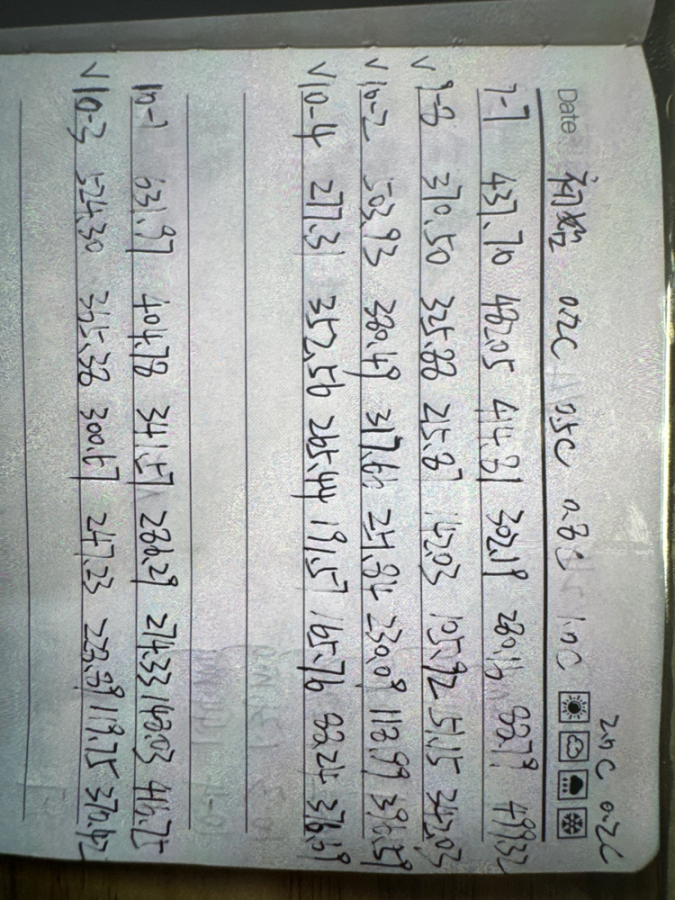 Date 初始 0.2C 0.5C 0.8C 1.0C 2.0C 0.2C
7-7 437.70 482.05 414.81 302.19 280.16 88.79 499.32
√ 9-8 370.50 325.88 215.87 142.03 105.92 51.15 342.03
√ 10-2 503.93 380.49 317.61 254.84 230.09 112.99 396.59
√ 10-4 277.31 352.56 265.44 191.57 165.76 88.24 376.09
10-1 631.97 404.78 341.57 286.29 274.33 148.03 416.75
√ 10-3 524.30 345.38 300.67 247.23 228.89 119.75 370.62